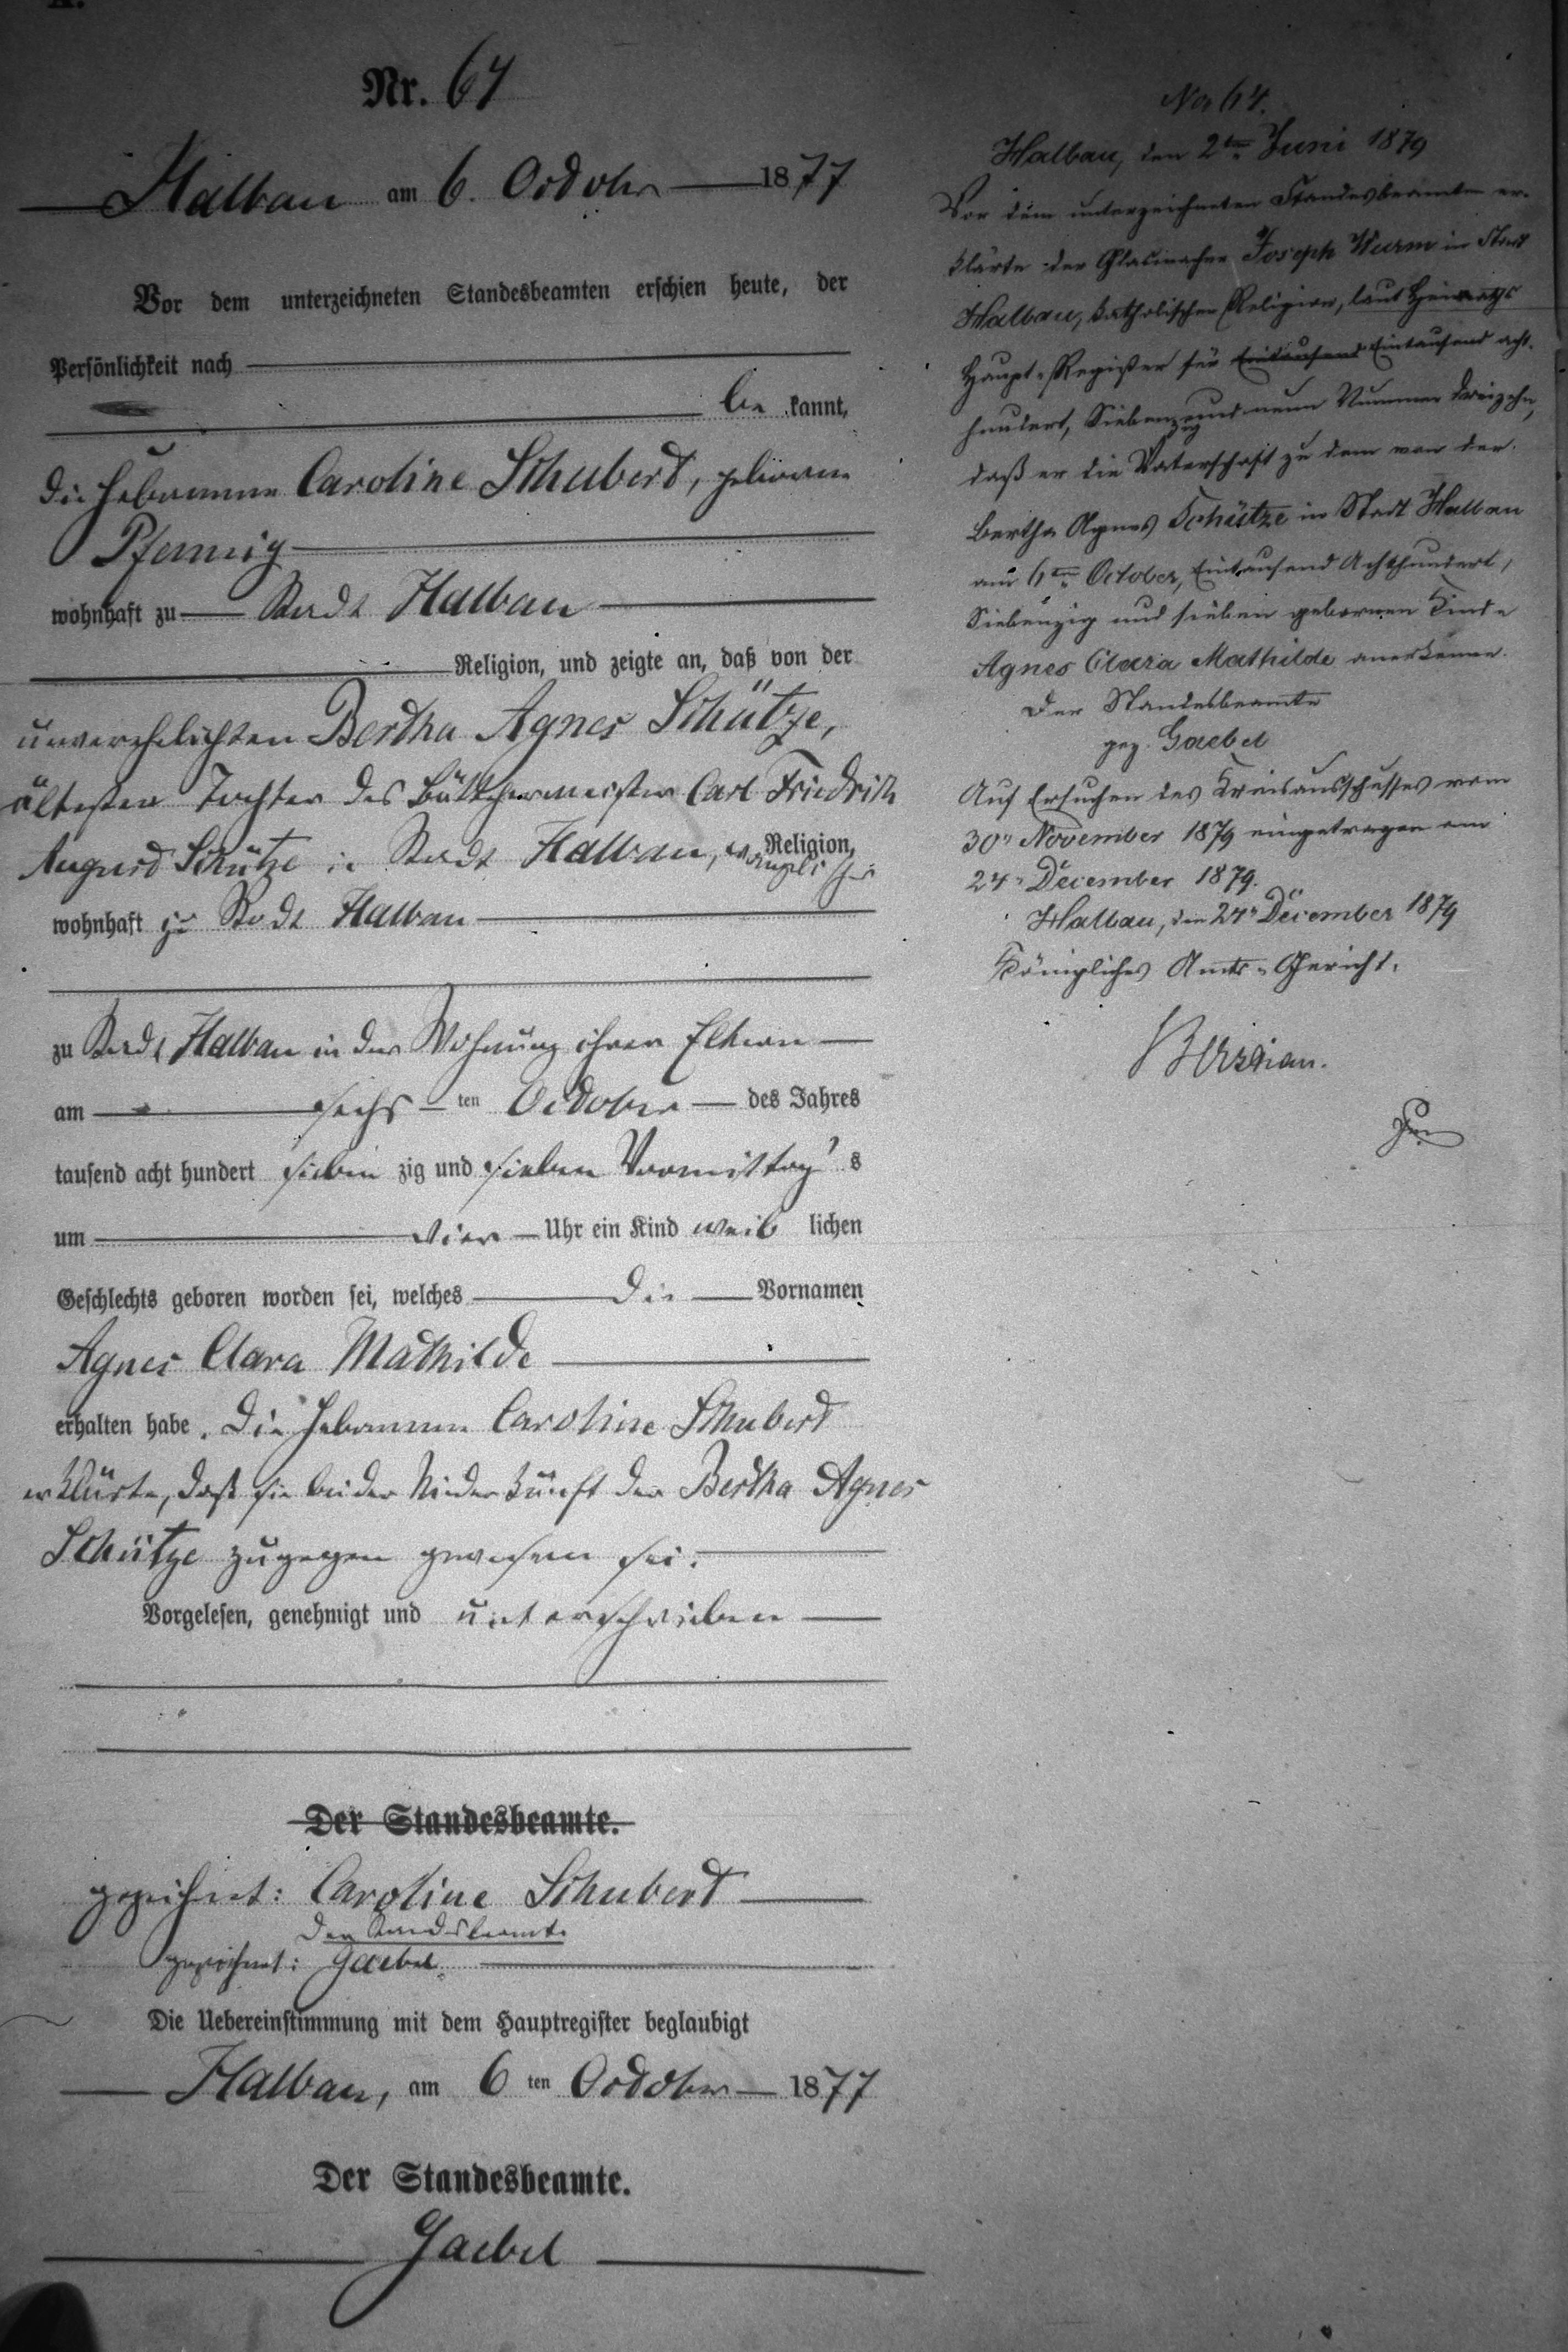 Nr. 64
Halbau am 6. October 1877
Vor dem unterzeichneten Standesbeamten erschien heute, der
Persönlichkeit nach
be kannt,
die Hebamme Caroline Schubert, geborene
Pfennig
wohnhaft zu Stadt Halbau
Religion, und zeigte an, daß von der
unverehelichten Bertha Agnes Schütze,
ältesten Tochter des Böttchermeister Carl Friedrich
August Schütze in Stadt Halbau, evangelischer Religion,
wohnhaft zu Stadt Halbau
zu Stadt Halbau in der Wohnung ihrer Eltern
am sechs ten October des Jahres
tausend acht hundert sieben zig und sieben Vormittag s
um vier Uhr ein Kind weib lichen
Geschlechts geboren worden sei, welches die Vornamen
Agnes Clara Mathilde
erhalten habe. Die Hebamme Caroline Schubert
erklärte, daß sie bei der Niederkunft der Bertha Agnes
Schütze zugegen gewesen sei.
Vorgelesen, genehmigt und unterschrieben
Der Standesbeamte.
gezeichnet: Caroline Schubert
Der Standesbeamte
gezeichnet: Gaebel.
Die Uebereinstimmung mit dem Hauptregister beglaubigt
Halbau, am 6 ten October 1877
Der Standesbeamte.
Gaebel
No 64.
Halbau, den 2ten Juni 1879
Vor dem unterzeichneten Standesbeamten er-
klärte der Glasmacher Joseph Wurm in Stadt
Halbau, katholischer Religion, laut Heiraths
Haupt-Register für Eintausend Eintausend acht-
hundert, Siebenzig und neun Nummer dreizehn,
daß er die Vaterschaft zu dem von der
Bertha Agnes Schütze in Stadt Halbau
am 6ten October, Eintausend Achthundert,
Siebenzig und sieben gebornen Kinde
Agnes Clara Mathilde anerkenne.
Der Standesbeamte
gez. Gaebel
Auf Ersuchen des Kreisausschusses vom
30n November 1879 eingetragen am
24n December 1879.
Halbau, den 24n December 1879
Königliches Amts-Gericht.